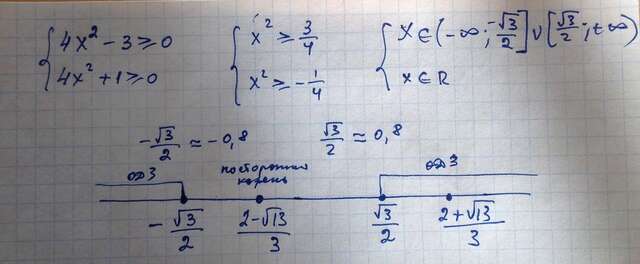 { 4x² - 3 ≥ 0 { x² ≥ 3/4 { x ∈ (-∞; -√3/2] ∪ [√3/2; +∞)
{ 4x² + 1 ≥ 0 { x² ≥ -1/4 { x ∈ R
-√3/2 ≈ -0,8 √3/2 ≈ 0,8
ОДЗ посторонний корень ОДЗ
-√3/2 (2-√13)/3 √3/2 (2+√13)/3